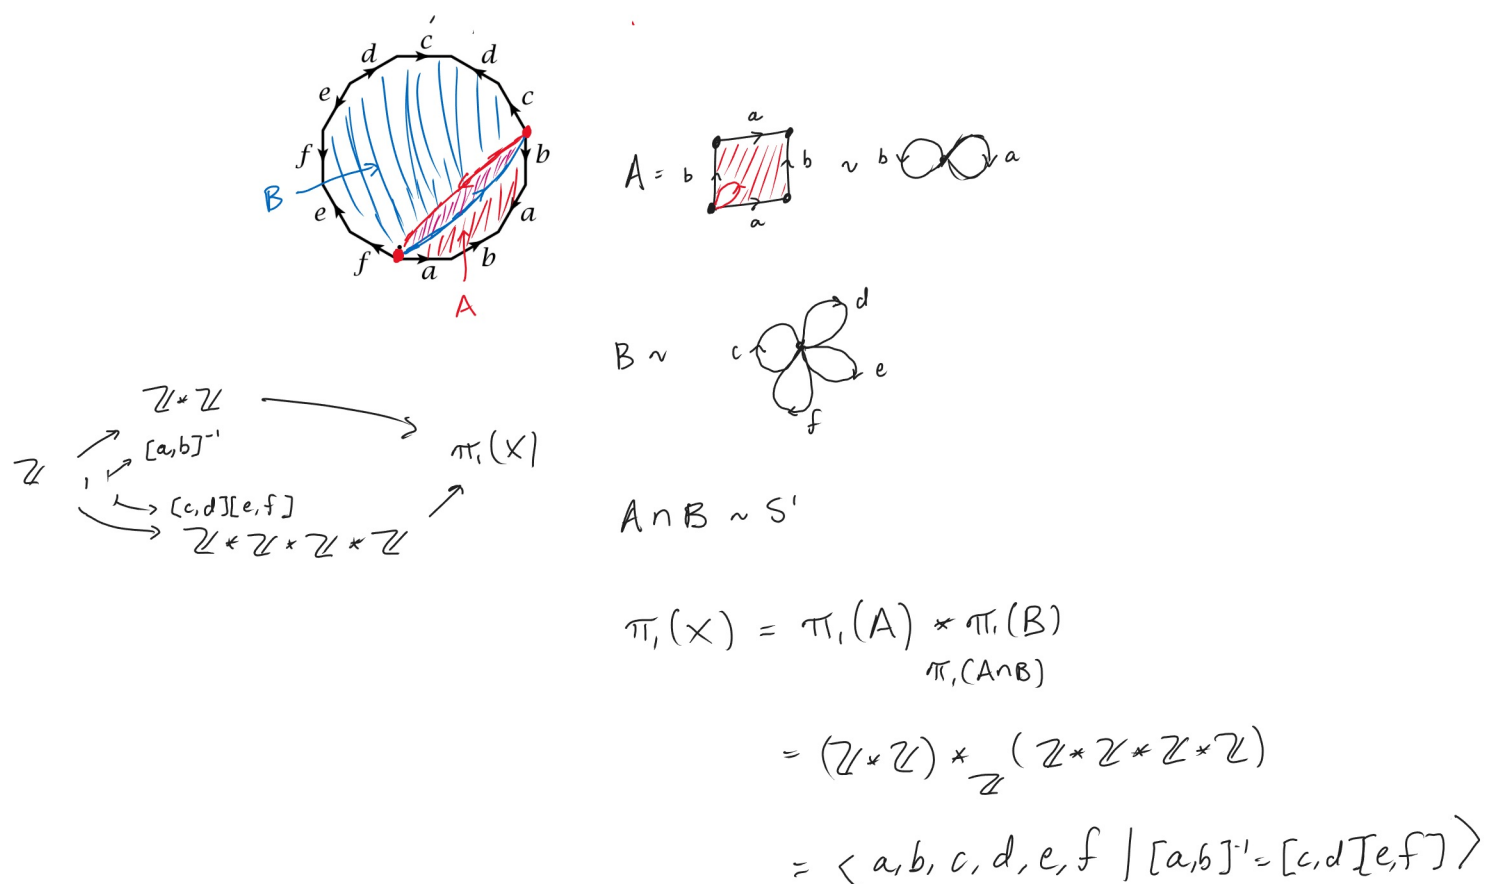 c
d d
e c
f b
B
e a
f a b
A
A = b a b a ~ b a
B ~ c d e f
ℤ * ℤ
[a,b]⁻¹
ℤ 1 π₁(X)
[c,d][e,f]
ℤ * ℤ * ℤ * ℤ
A ∩ B ~ S¹
π₁(X) = π₁(A) * π₁(B)
π₁(A∩B)
= (ℤ * ℤ) *_ℤ (ℤ * ℤ * ℤ * ℤ)
= < a, b, c, d, e, f | [a,b]⁻¹ = [c,d][e,f] >